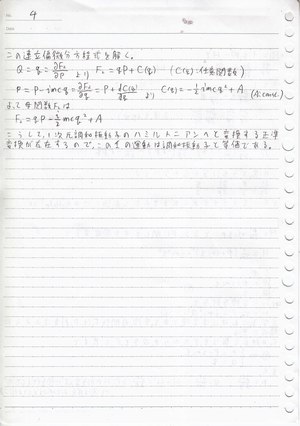 No. 4
Date
この連立偏微分方程式を解く。
Q = q = ∂F₂/∂P より F₂ = qP + C(q) (C(q):任意関数)
p = P - imcq = ∂F₂/∂q = P + dC(q)/dq より C(q) = -1/2 imcq² + A (A:const.)
よって母関数F₂は
F₂ = qP - i/2 mcq² + A
こうして、1次元調和振動子のハミルトニアンへと変換する正準
変換が存在するので、この系の運動は調和振動子と等価である。